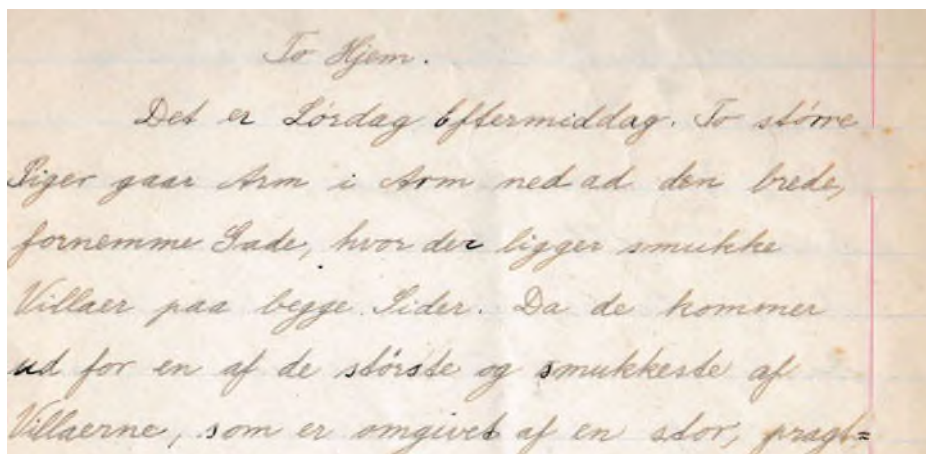 To Hjem.
Det er Lørdag Eftermiddag. To større
Piger gaar Arm i Arm ned ad den brede,
fornemme Gade, hvor der ligger smukke
Villaer paa begge Sider. Da de kommer
ud for en af de største og smukkeste af
Villaerne, som er omgivet af en stor, pragt=